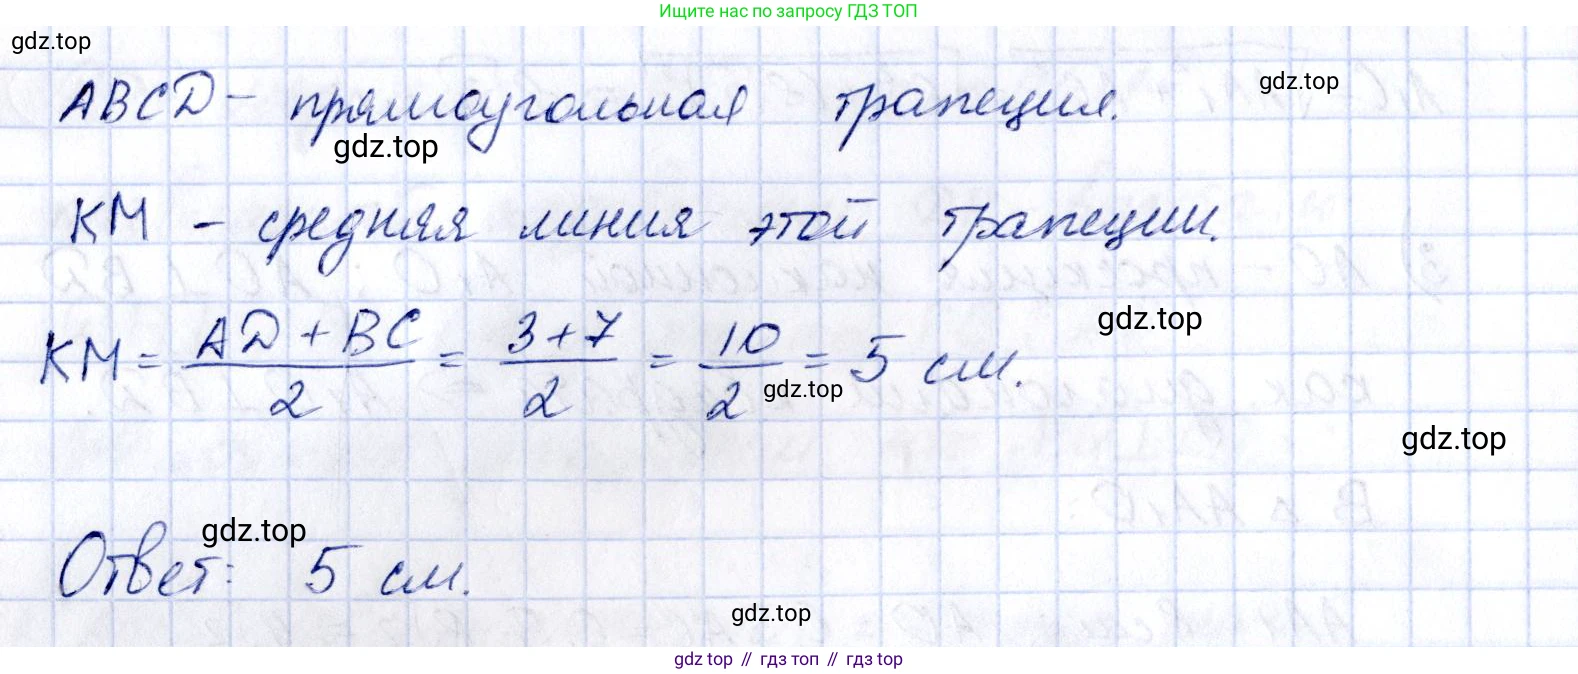 Ищите нас по запросу ГДЗ ТОП
gdz.top
ABCD - прямоугольная трапеция.
gdz.top
gdz.top
KM - средняя линия этой трапеции.
KM = (AD + BC)/2 = (3+7)/2 = 10/2 = 5 см.
gdz.top
gdz.top
gdz.top
Ответ: 5 см.
gdz.top
gdz.top
gdz top // гдз топ // гдз top